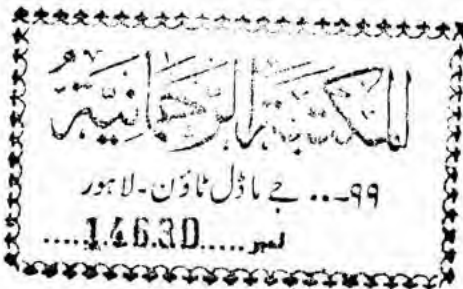 المکتبۃ الرحمانیۃ
۹۹-... جے ماڈل ٹاؤن - لاہور
نمبر .....1.4.6.3.0.....